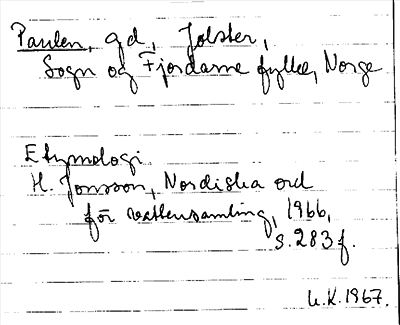 Paulen, gd, Jolster,
Sogn og Fjordane fylke, Norge
Etymologi
H. Jonsson, Nordiska ord
för vattensamling, 1966,
s. 283 f.
U.K. 1967.